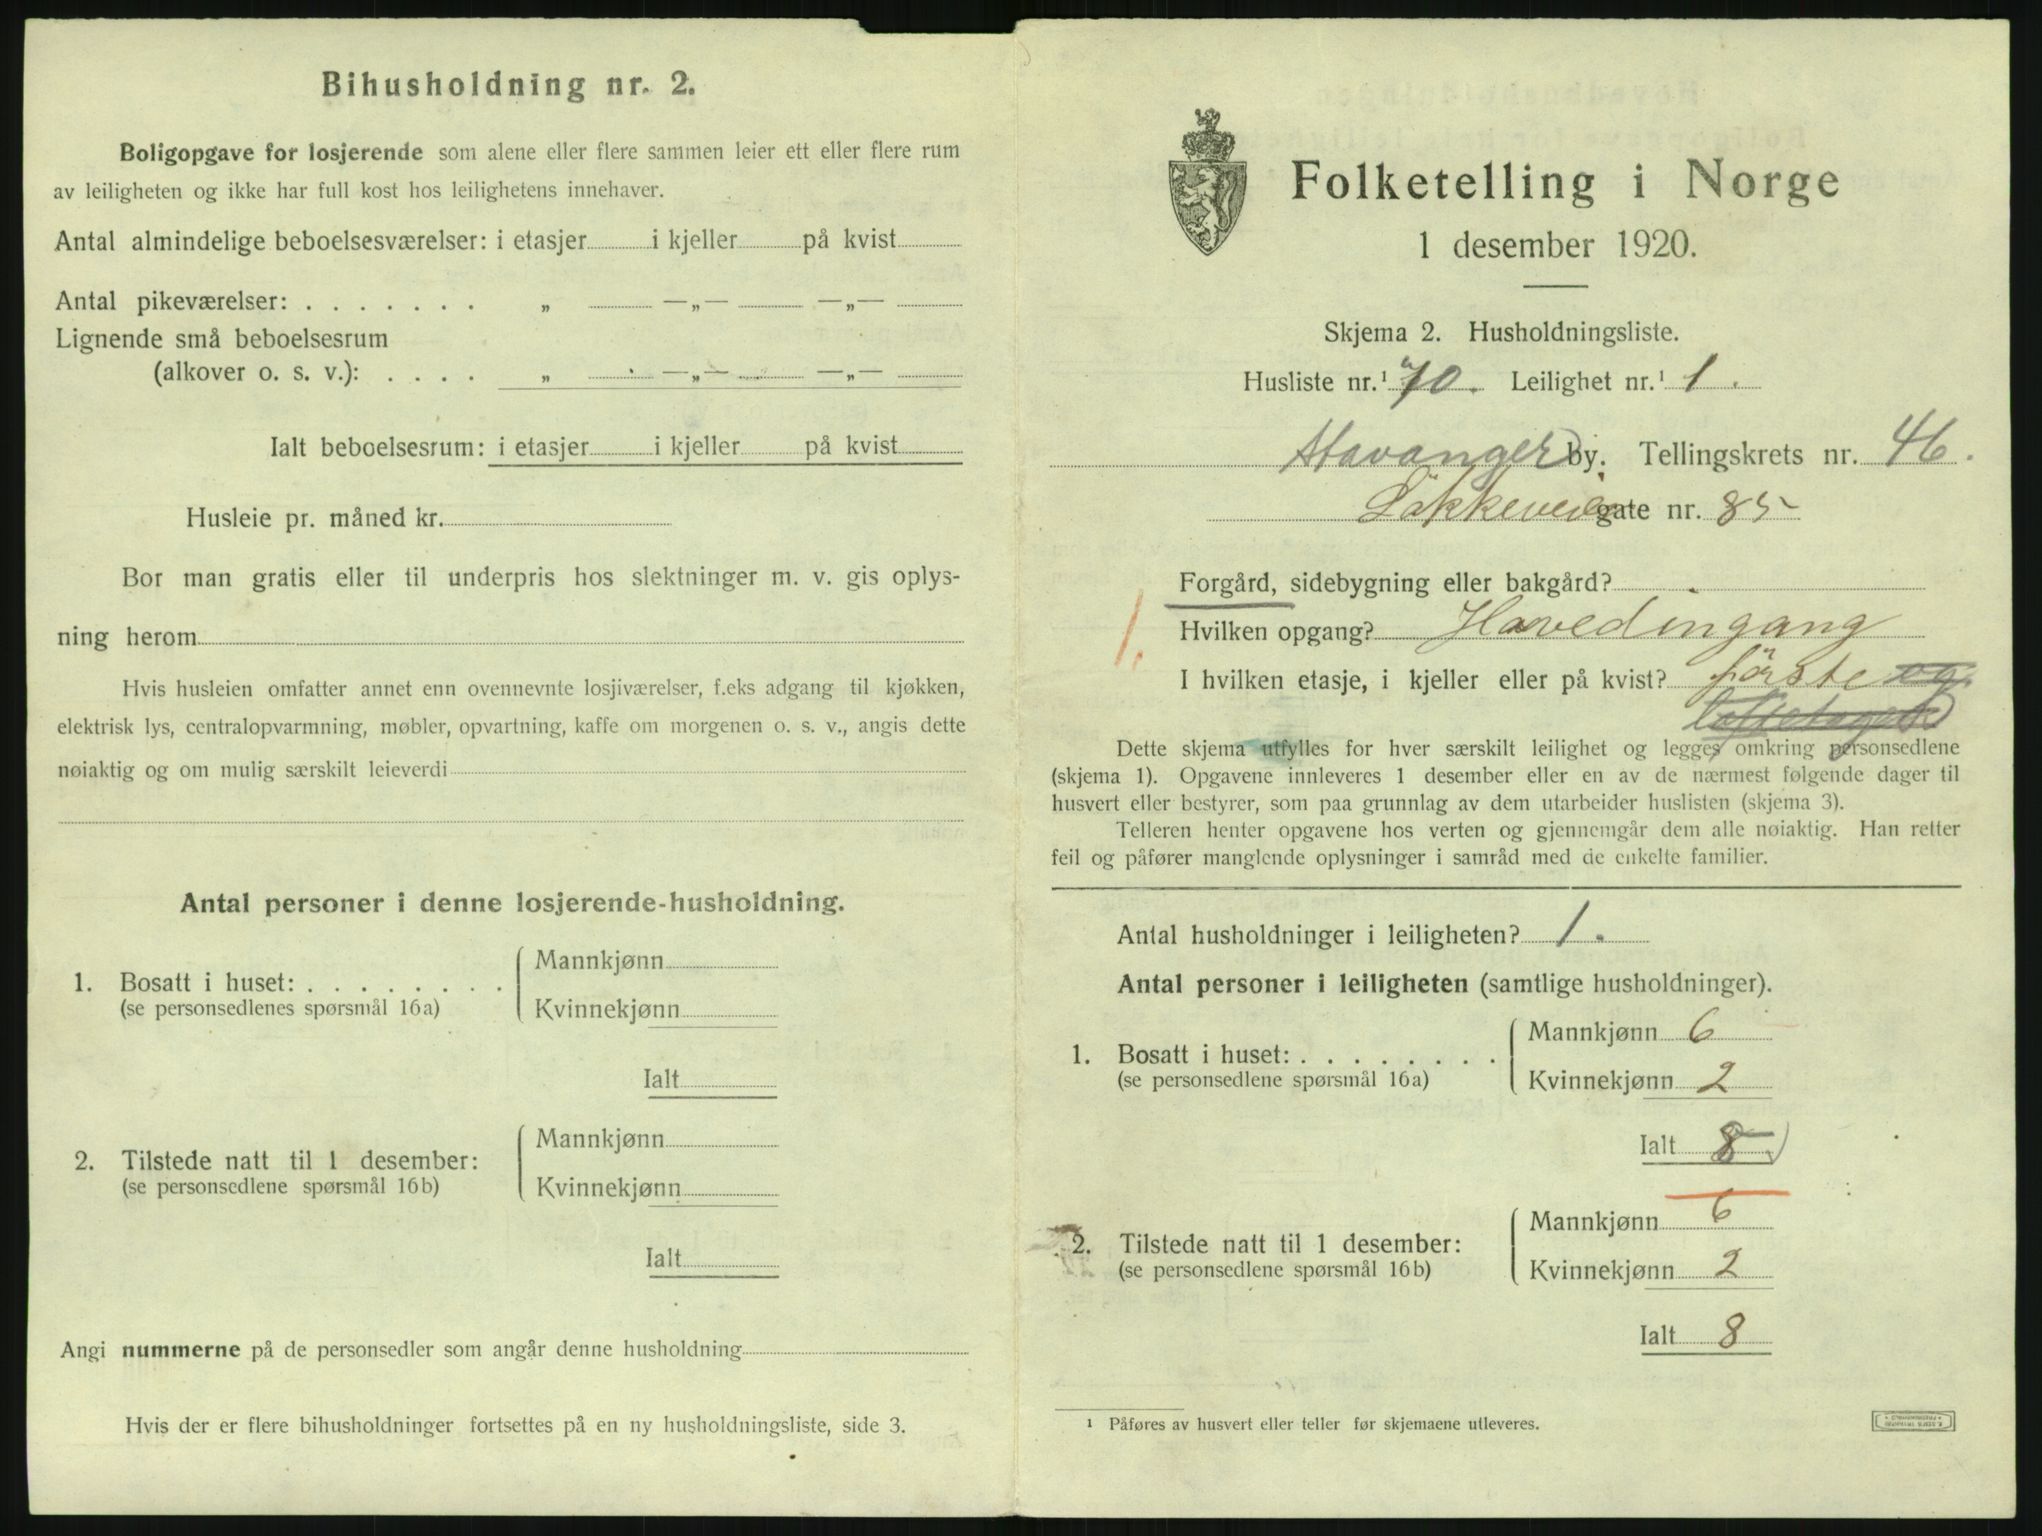 Bihusholdning nr. 2.
Boligopgave for losjerende som alene eller flere sammen leier ett eller flere rum
av leiligheten og ikke har full kost hos leilighetens innehaver.
Antal almindelige beboelsesværelser: i etasjer i kjeller på kvist
Antal pikeværelser: . . . . . . . „ —„— —„—
Lignende små beboelsesrum
(alkover o. s. v.): . . . . „ —„— —„—
Ialt beboelsesrum: i etasjer i kjeller på kvist
Husleie pr. måned kr.
Bor man gratis eller til underpris hos slektninger m. v. gis oplys-
ning herom
Hvis husleien omfatter annet enn ovennevnte losjiværelser, f.eks adgang til kjøkken,
elektrisk lys, centralopvarmning, møbler, opvartning, kaffe om morgenen o. s. v., angis dette
nøiaktig og om mulig særskilt leieverdi
Antal personer i denne losjerende-husholdning.
1. Bosatt i huset: . . . . . . . .
(se personsedlenes spørsmål 16a)
Mannkjønn
Kvinnekjønn
Ialt
2. Tilstede natt til 1 desember:
(se personsedlene spørsmål 16b)
Mannkjønn
Kvinnekjønn
Ialt
Angi nummerne på de personsedler som angår denne husholdning
Hvis der er flere bihusholdninger fortsettes på en ny husholdningsliste, side 3.
Folketelling i Norge
1 desember 1920.
Skjema 2. Husholdningsliste.
Husliste nr.¹ 70. Leilighet nr.¹ 1.
Stavanger by. Tellingskrets nr. 46.
Løkkeveien gate nr. 85
Forgård, sidebygning eller bakgård?
1.
Hvilken opgang? Hovedingang
I hvilken etasje, i kjeller eller på kvist? förste og
Dette skjema utfylles for hver særskilt leilighet og legges omkring personsedlene
(skjema 1). Opgavene innleveres 1 desember eller en av de nærmest følgende dager til
husvert eller bestyrer, som paa grunnlag av dem utarbeider huslisten (skjema 3).
Telleren henter opgavene hos verten og gjennemgår dem alle nøiaktig. Han retter
feil og påfører manglende oplysninger i samråd med de enkelte familier.
Antal husholdninger i leiligheten? 1.
Antal personer i leiligheten (samtlige husholdninger).
1. Bosatt i huset: . . . . . . . .
(se personsedlene spørsmål 16a)
Mannkjønn 6
Kvinnekjønn 2
Ialt 8
2. Tilstede natt til 1 desember:
(se personsedlene spørsmål 16b)
Mannkjønn 6
Kvinnekjønn 2
Ialt 8
¹ Påføres av husvert eller teller før skjemaene utleveres.